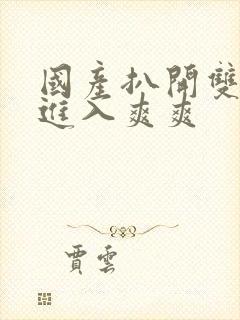 國產扒開雙
進入爽爽
賈雲